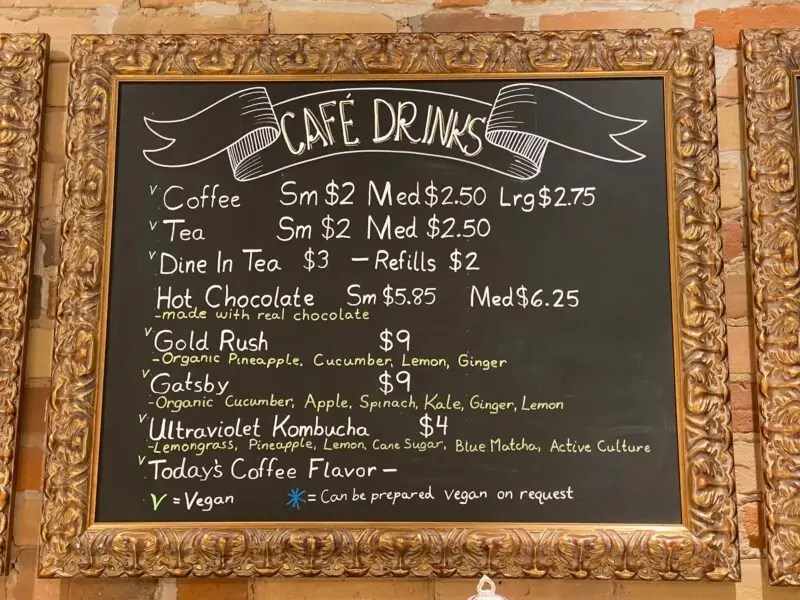 CAFÉ DRINKS
v Coffee Sm $2 Med $2.50 Lrg $2.75
v Tea Sm $2 Med $2.50
v Dine In Tea $3 – Refills $2
Hot Chocolate Sm $5.85 Med $6.25
-made with real chocolate
v Gold Rush $9
-Organic Pineapple, Cucumber, Lemon, Ginger
v Gatsby $9
-Organic Cucumber, Apple, Spinach, Kale, Ginger, Lemon
v Ultraviolet Kombucha $4
-Lemongrass, Pineapple, Lemon, Cane Sugar, Blue Matcha, Active Culture
v Today's Coffee Flavor –
V = Vegan * = Can be prepared vegan on request